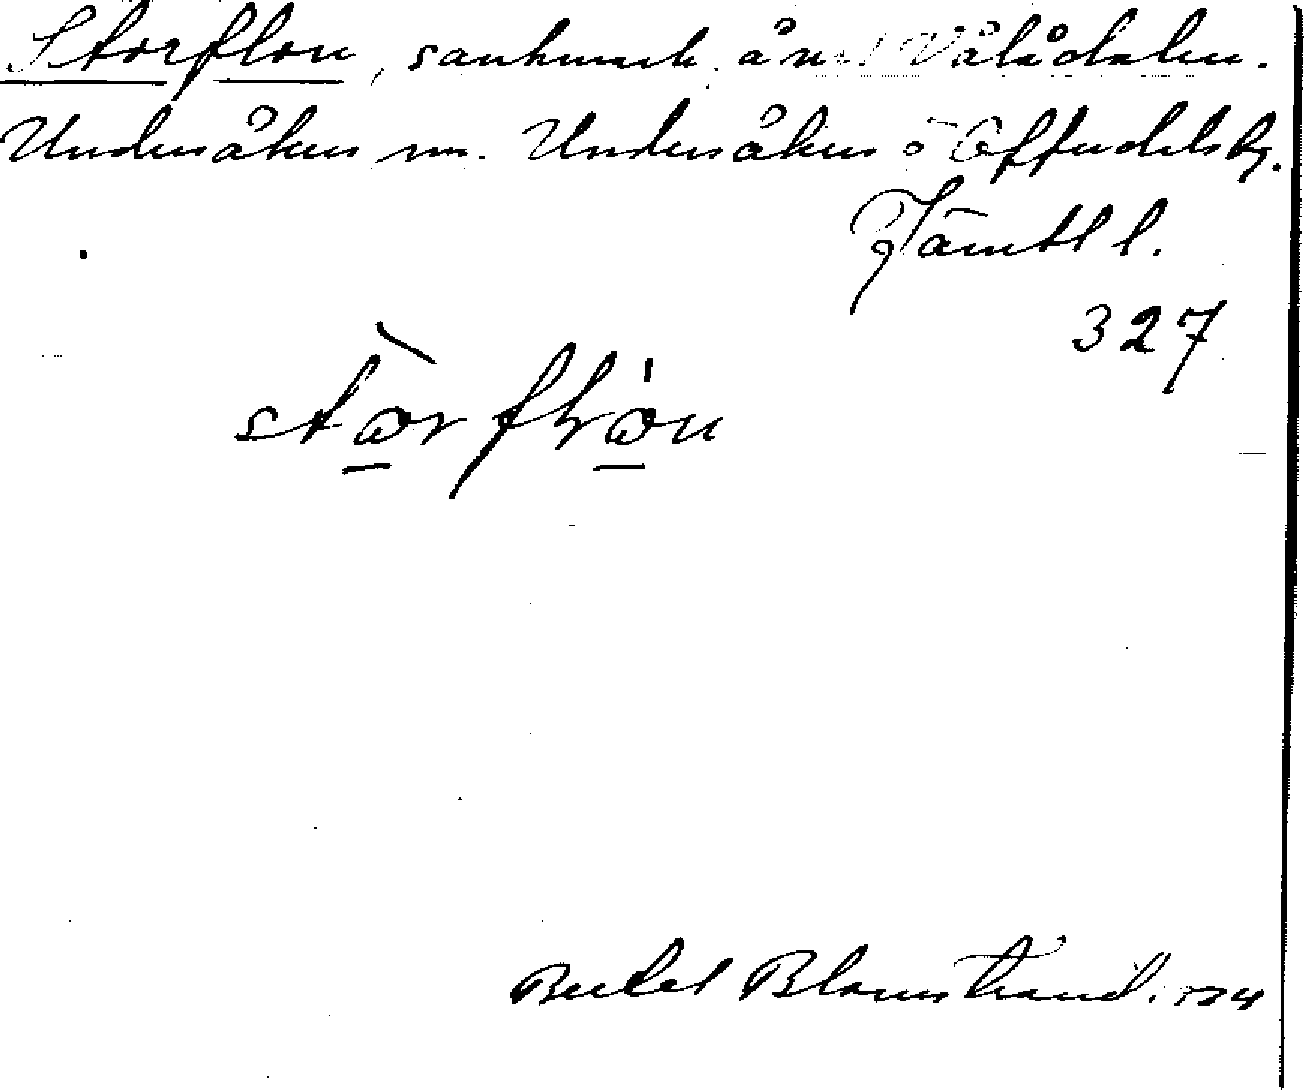 Storflon, sankmark. Vålådalen.
Undersåkers sn. Undersåkers o Offerdals tg.
Jämtl l.
327
Bertel Blomstrand.